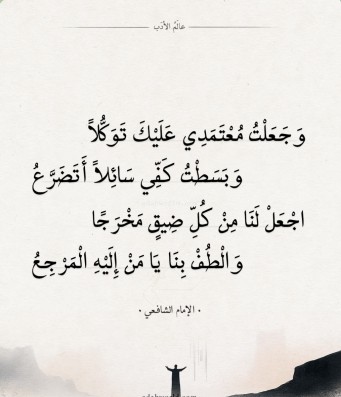 عالم الأدب
وَجَعَلْتُ مُعْتَمَدِي عَلَيْكَ تَوَكُّلاً
وَبَسَطْتُ كَفِّي سَائِلاً أَتَضَرَّعُ
اجْعَلْ لَنَا مِنْ كُلِّ ضِيقٍ مَخْرَجًا
وَالْطُفْ بِنَا يَا مَنْ إِلَيْهِ الْمَرْجِعُ
· الإمام الشافعي ·